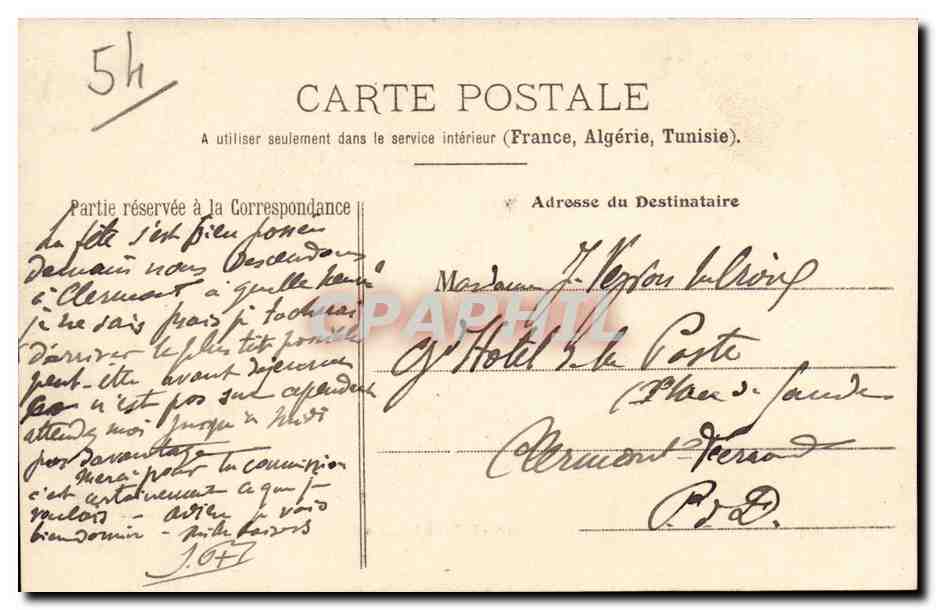 54
CARTE POSTALE
A utiliser seulement dans le service intérieur (France, Algérie, Tunisie).
Partie réservée à la Correspondance
La fête s'est bien passée
demain nous descendons
à Clermont à quelle heure
je ne sais mais je tacherai
d'arriver le plus tôt possible
peut-être avant déjeuner
ce n'est pas sur cependant
attendez moi jusqu'à midi
pas davantage
Merci pour ta commission
c'est certainement ce que je
voulais - adieu je vais
bien dormir - mille baisers
Adresse du Destinataire
Madame J.
Gd Hotel de la Poste
Place de Jaude
Clermont-Ferrand
P. d D.
CPAPHIL